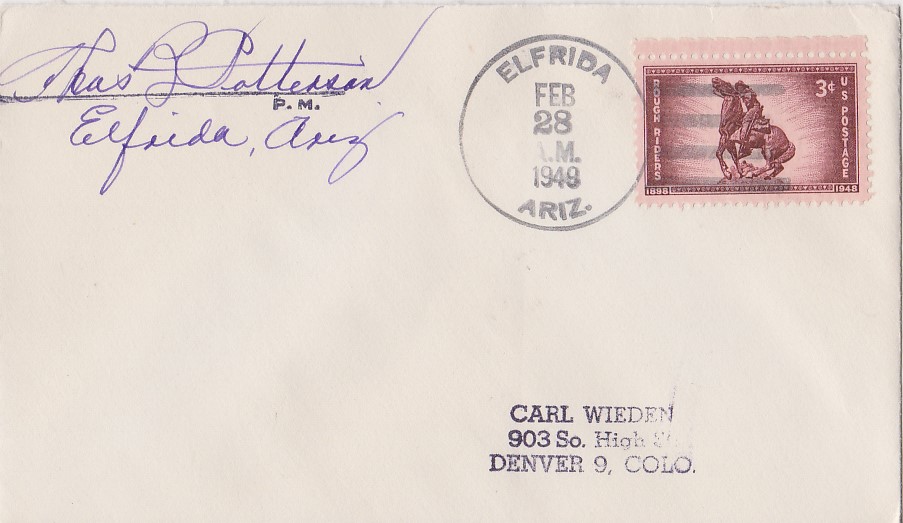 Thos Patterson
P.M.
Elfrida, Ariz
ELFRIDA
FEB
28
A.M.
1949
ARIZ.
ROUGH RIDERS
3¢
U S POSTAGE
1898 1948
CARL WIEDEN
903 So. High St.
DENVER 9, COLO.